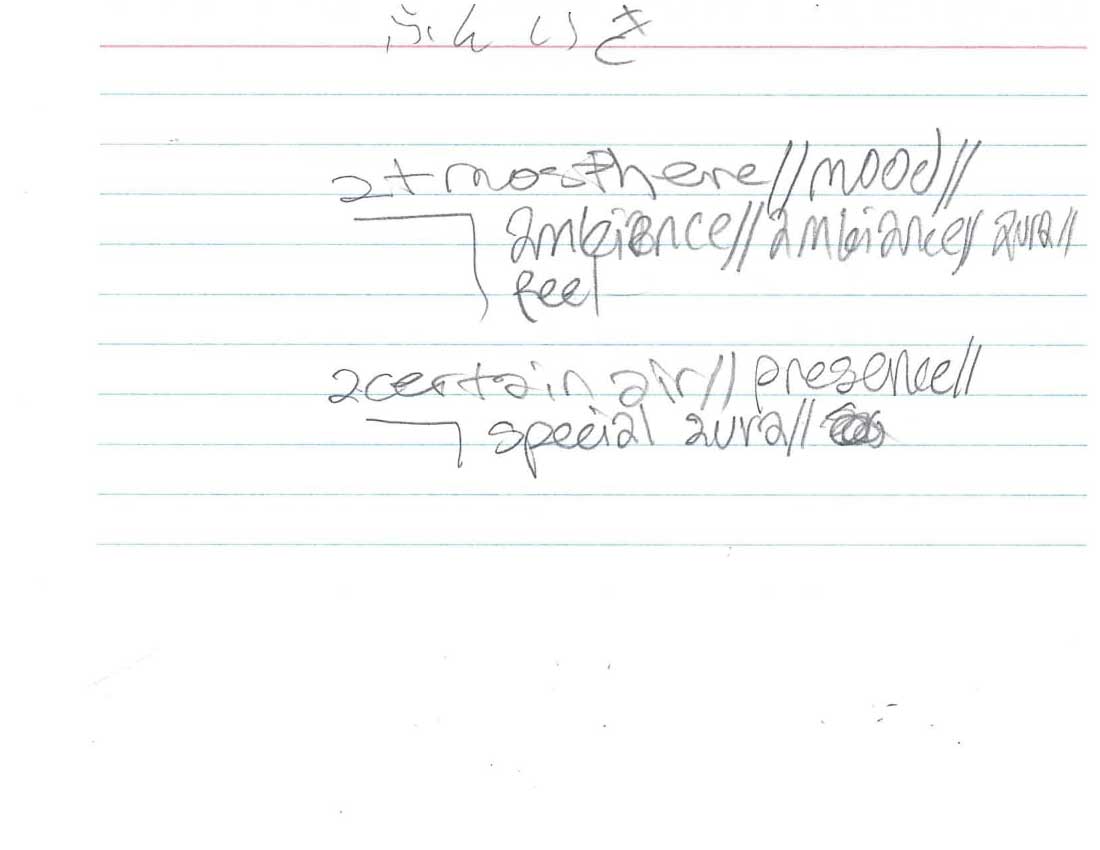 ふんいき
atmosphere//mood//
ambience//ambiance//aura//
feel
a certain air//presence//
special aura//